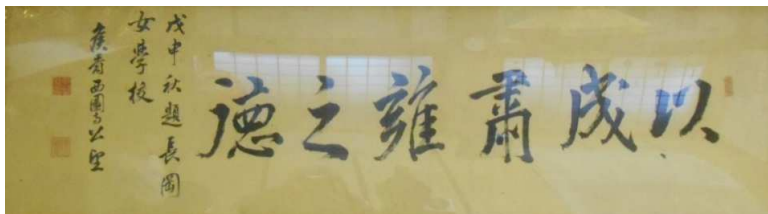 以成肅雍之徳
戊申秋題長岡
女學校
侯爵西園寺公望